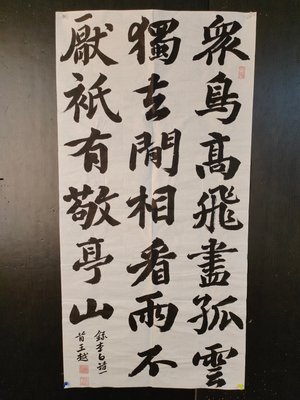 衆鳥高飛盡孤雲
獨去閒相看兩不
厭祇有敬亭山
錄李白詩一
首王越